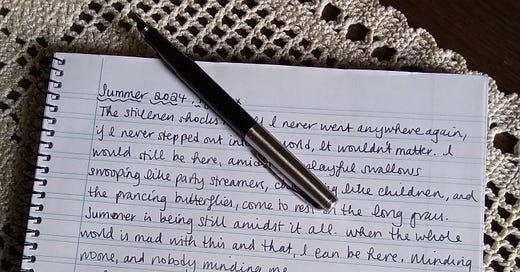 Summer 2024.
The stillness shocks I never went anywhere again,
if I never stepped out in world, It wouldn't matter. I
would still be here, amid playful swallows
swooping like party streamers, like children, and
the prancing butterflies, come to rest in the long grass.
Summer is being still amidst it all. When the whole
world is mad with this and that, I can be here. Minding
noone, and nobody minding me